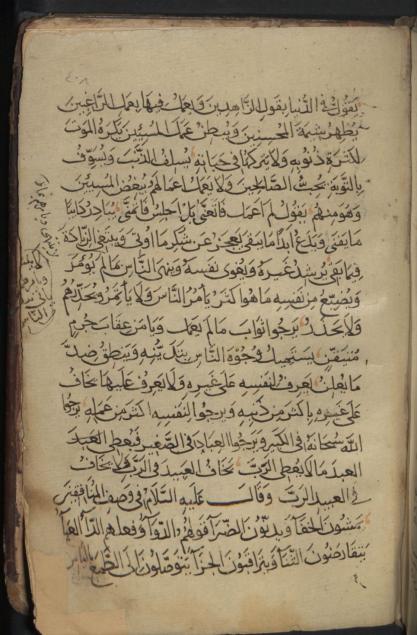 يقول في الدنيا بقول الزاهدين ويعمل فيها بعمل الراغبين
يظهر شيمة المحسنين ويبطن عمل المسيئين يكره الموت
لكثرة ذنوبه ولا يتركها في حياته يسلف الذنب ويسوف
بالتوبة يحب الصالحين ولا يعمل اعمالهم يبغض المسيئين
وهو منهم يقول لم اعمل فاتعنى بل اجلس فاتمنى يبادر دائبا
ما يفنى ويدع ابدا ما يبقى يعجز عن شكر ما اوتى ويبتغى الزيادة
فيما بقى يرشد غيره ويغوى نفسه وينهى الناس مالم يؤمر
ويضيع من نفسه ما هو اكثر يأمر الناس ولا يأتمر ويحذرهم
ولا يحذر يرجوا ثواب مالم يعمل ويامن عقاب جرم
متيقن يستميل وجوه الناس بتدينه ويبطن ضد
ما يعلن يعرف لنفسه على غيره ولا يعرف عليها يخاف
على غيره باكثر من ذنبه ويرجوا لنفسه اكثر من عمله يرجوا
الله سبحانه في الكبير ويرجوا العباد في الصغير فيعطى العبد
العبد مالا يعطى الرب يخاف العبيد في الرب ولا يخاف
في العبيد الرب وقال عليه السلام في وصف المنافقين
يمشون الخفا ويدبون الضرا قولهم الدوا وفعلهم الدآ العيا
يتقارضون الثنا ويتراقبون الجزآ يتوصلون الى الطمع بالياس